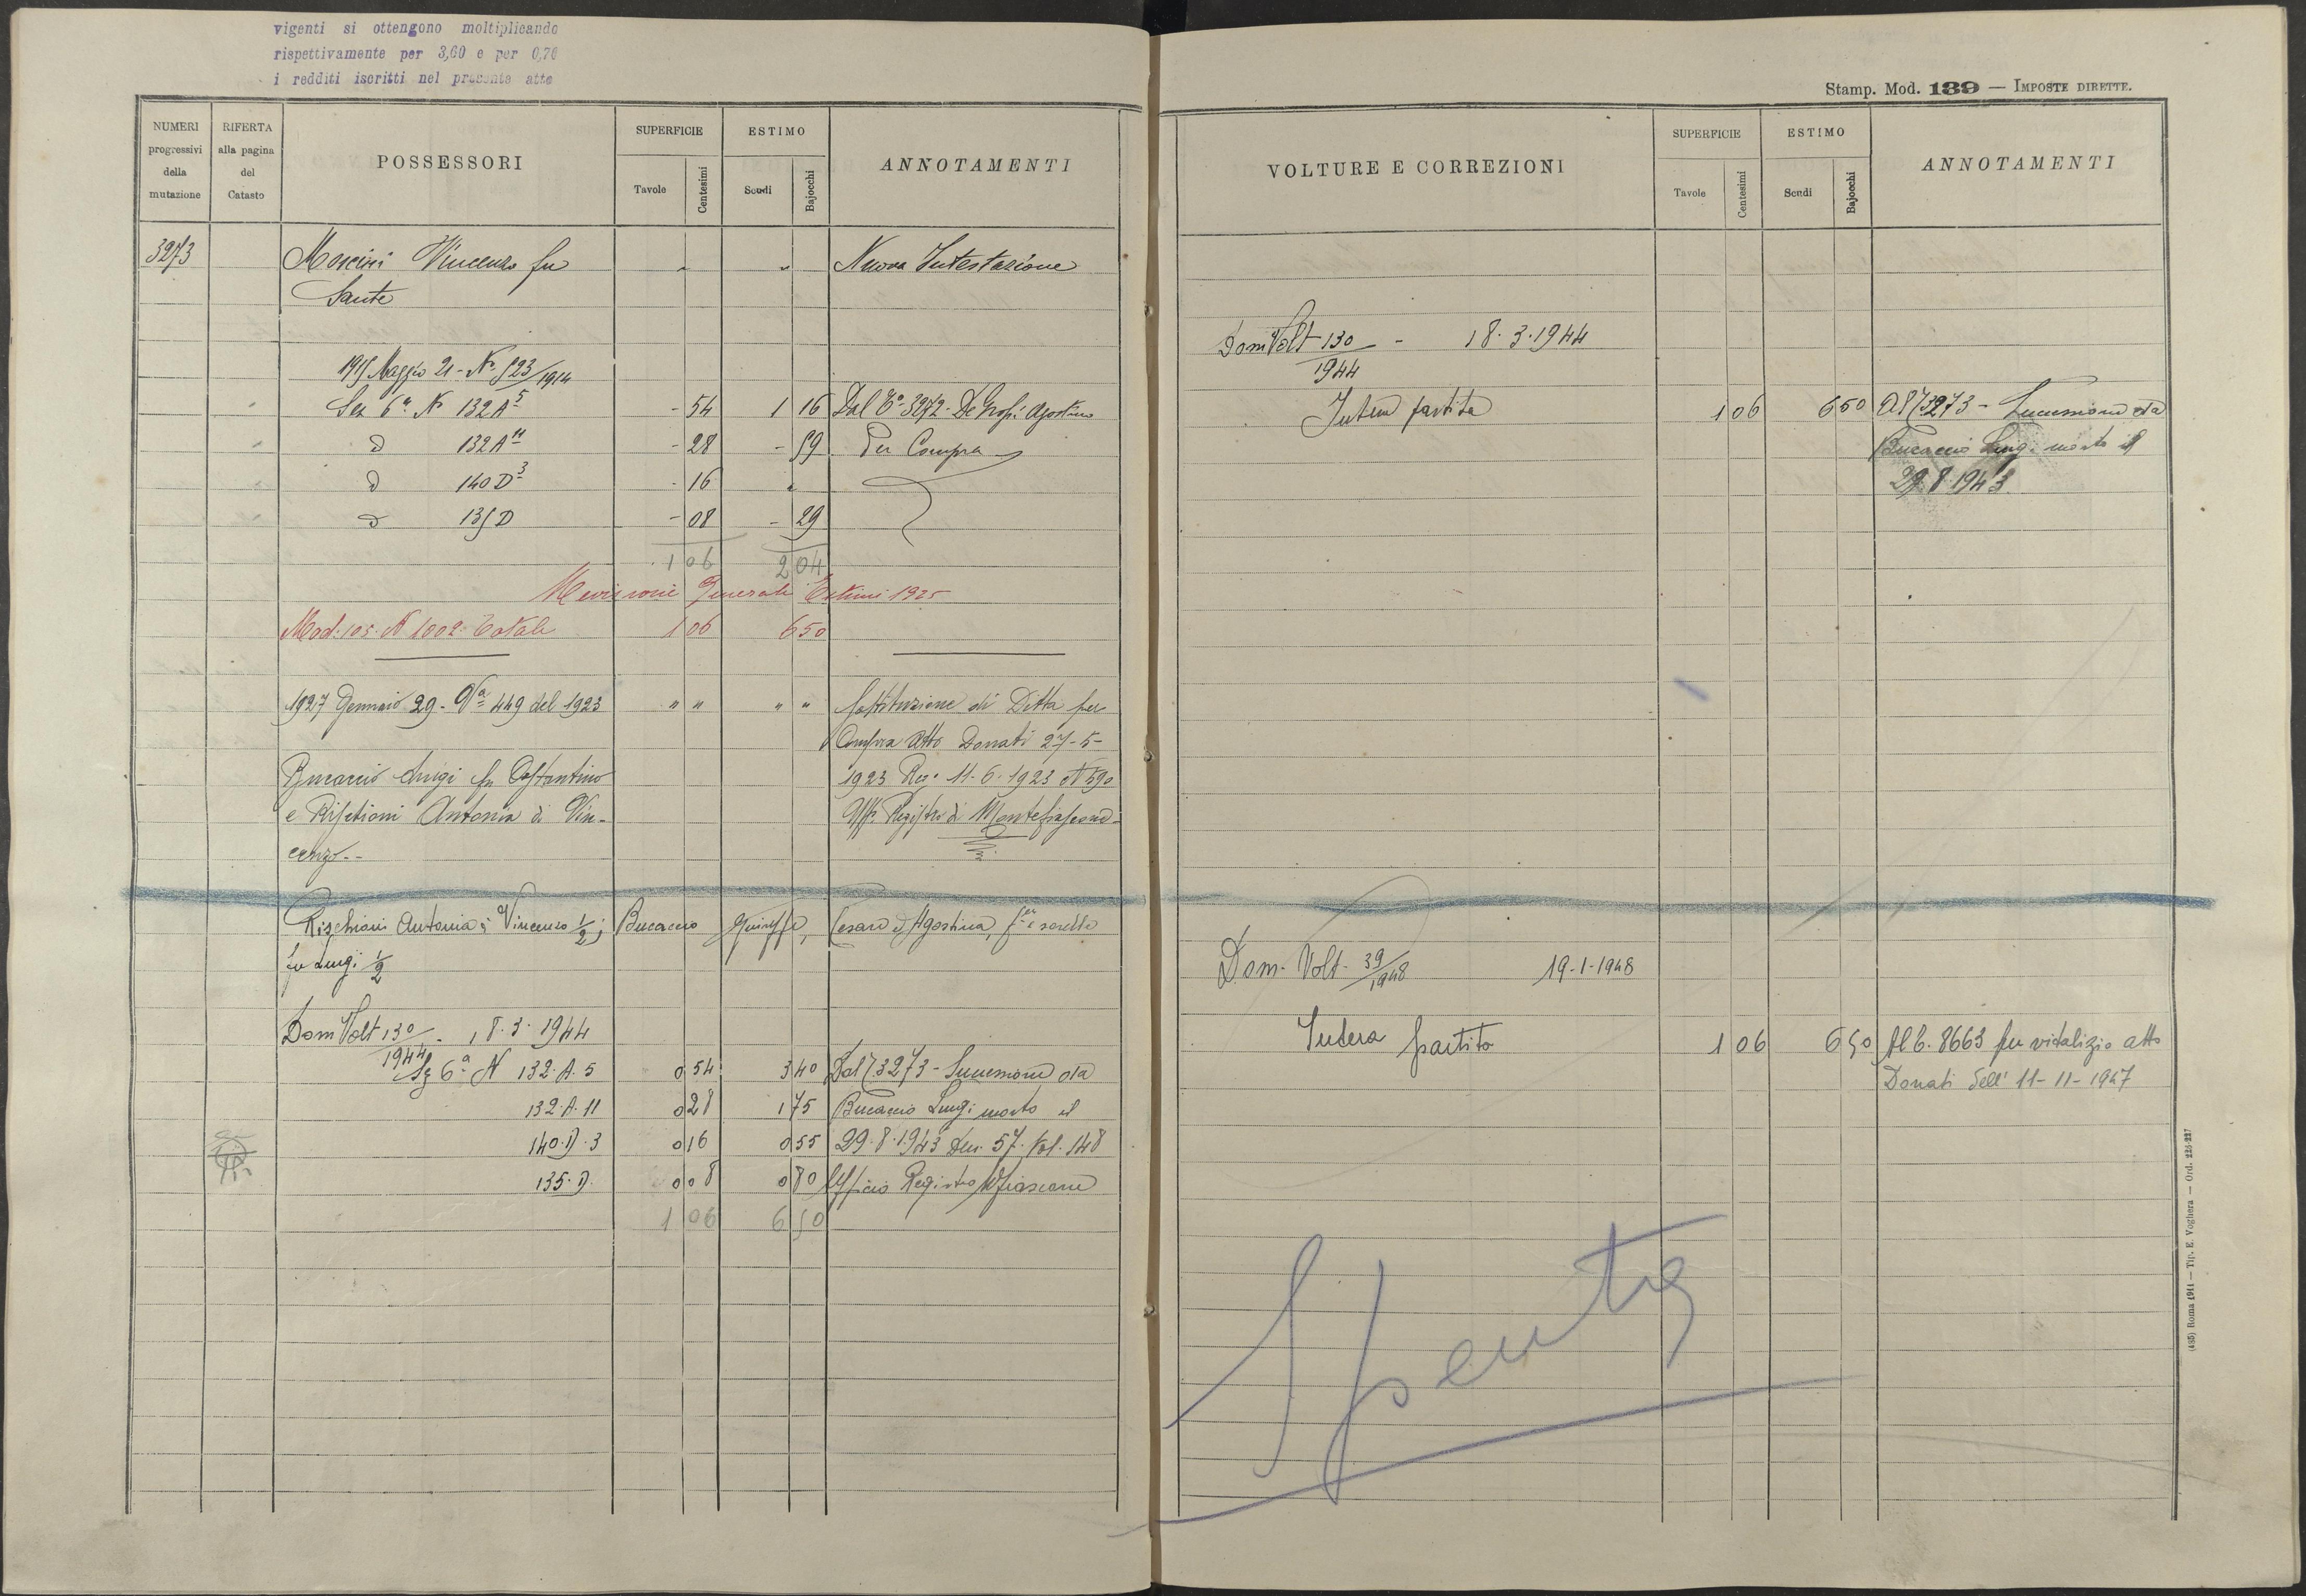 vigenti si ottengono moltiplicando
rispettivamente per 3,60 e per 0,70
i redditi iscritti nel presente atto
NUMERI progressivi della mutazione
RIFERTA alla pagina del Catasto
POSSESSORI
SUPERFICIE
Tavole
Centesimi
ESTIMO
Scudi
Bajocchi
ANNOTAMENTI
3273 Vincenzo fu " " Nuova Intestazione
Sante
Maggio 21 - N. 523/1914
Sez 6ª N 132 A 5 - 54 1 16 Dal 3272 Agostino
D 132 A 11 - 28 - 59 Per Compra
D 140 D 3 - 16 "
D 135 D - 08 - 29
1 06 2 04
Revisione Generale Estimi 1925
Mod. 105. N 1002. Totale 1 06 6 50
1927 Gennaio 29 - 449 del 1923 " " " " Sostituzione di Ditta per
Compra Atto Donati 27-5-
Bucaccio Luigi fu Costantino 1923 Reg. 11-6-1923 N 590
e Antonia di Vin- Uff. Registro di Montefiascone
cenzo
Antonia di Vincenzo 1/2; Bucaccio Cesare ed Agostina, e sorelle
fu Luigi 1/2
Dom Volt 130/1944 - 18.3.1944
Sez 6ª N 132. A. 5 0 54 3 40 Dal 3273 - Successione da
132. A. 11 0 28 1 75 Bucaccio Luigi morto il
140. D. 3 0 16 0 55 29.8.1943 Den. 57. Vol. 148
135. D. 0 08 0 80 Ufficio Registro
1 06 6 50
Stamp. Mod. 139 — IMPOSTE DIRETTE.
VOLTURE E CORREZIONI
SUPERFICIE
Tavole
Centesimi
ESTIMO
Scudi
Bajocchi
ANNOTAMENTI
Dom Volt 130/1944 - 18.3.1944
Intera partita 1 06 6 50 Al 3273 - Successione da
Bucaccio Luigi morto il
29.8.1943.
Dom. Volt. 39/1948 19-1-1948
Intera partita 1 06 6 50 Al 6. 8663 per vitalizio atto
Donati dell' 11-11-1947
Spenta
(485) Roma 1914 — Tip. E. Voghera — Ord. 226-227